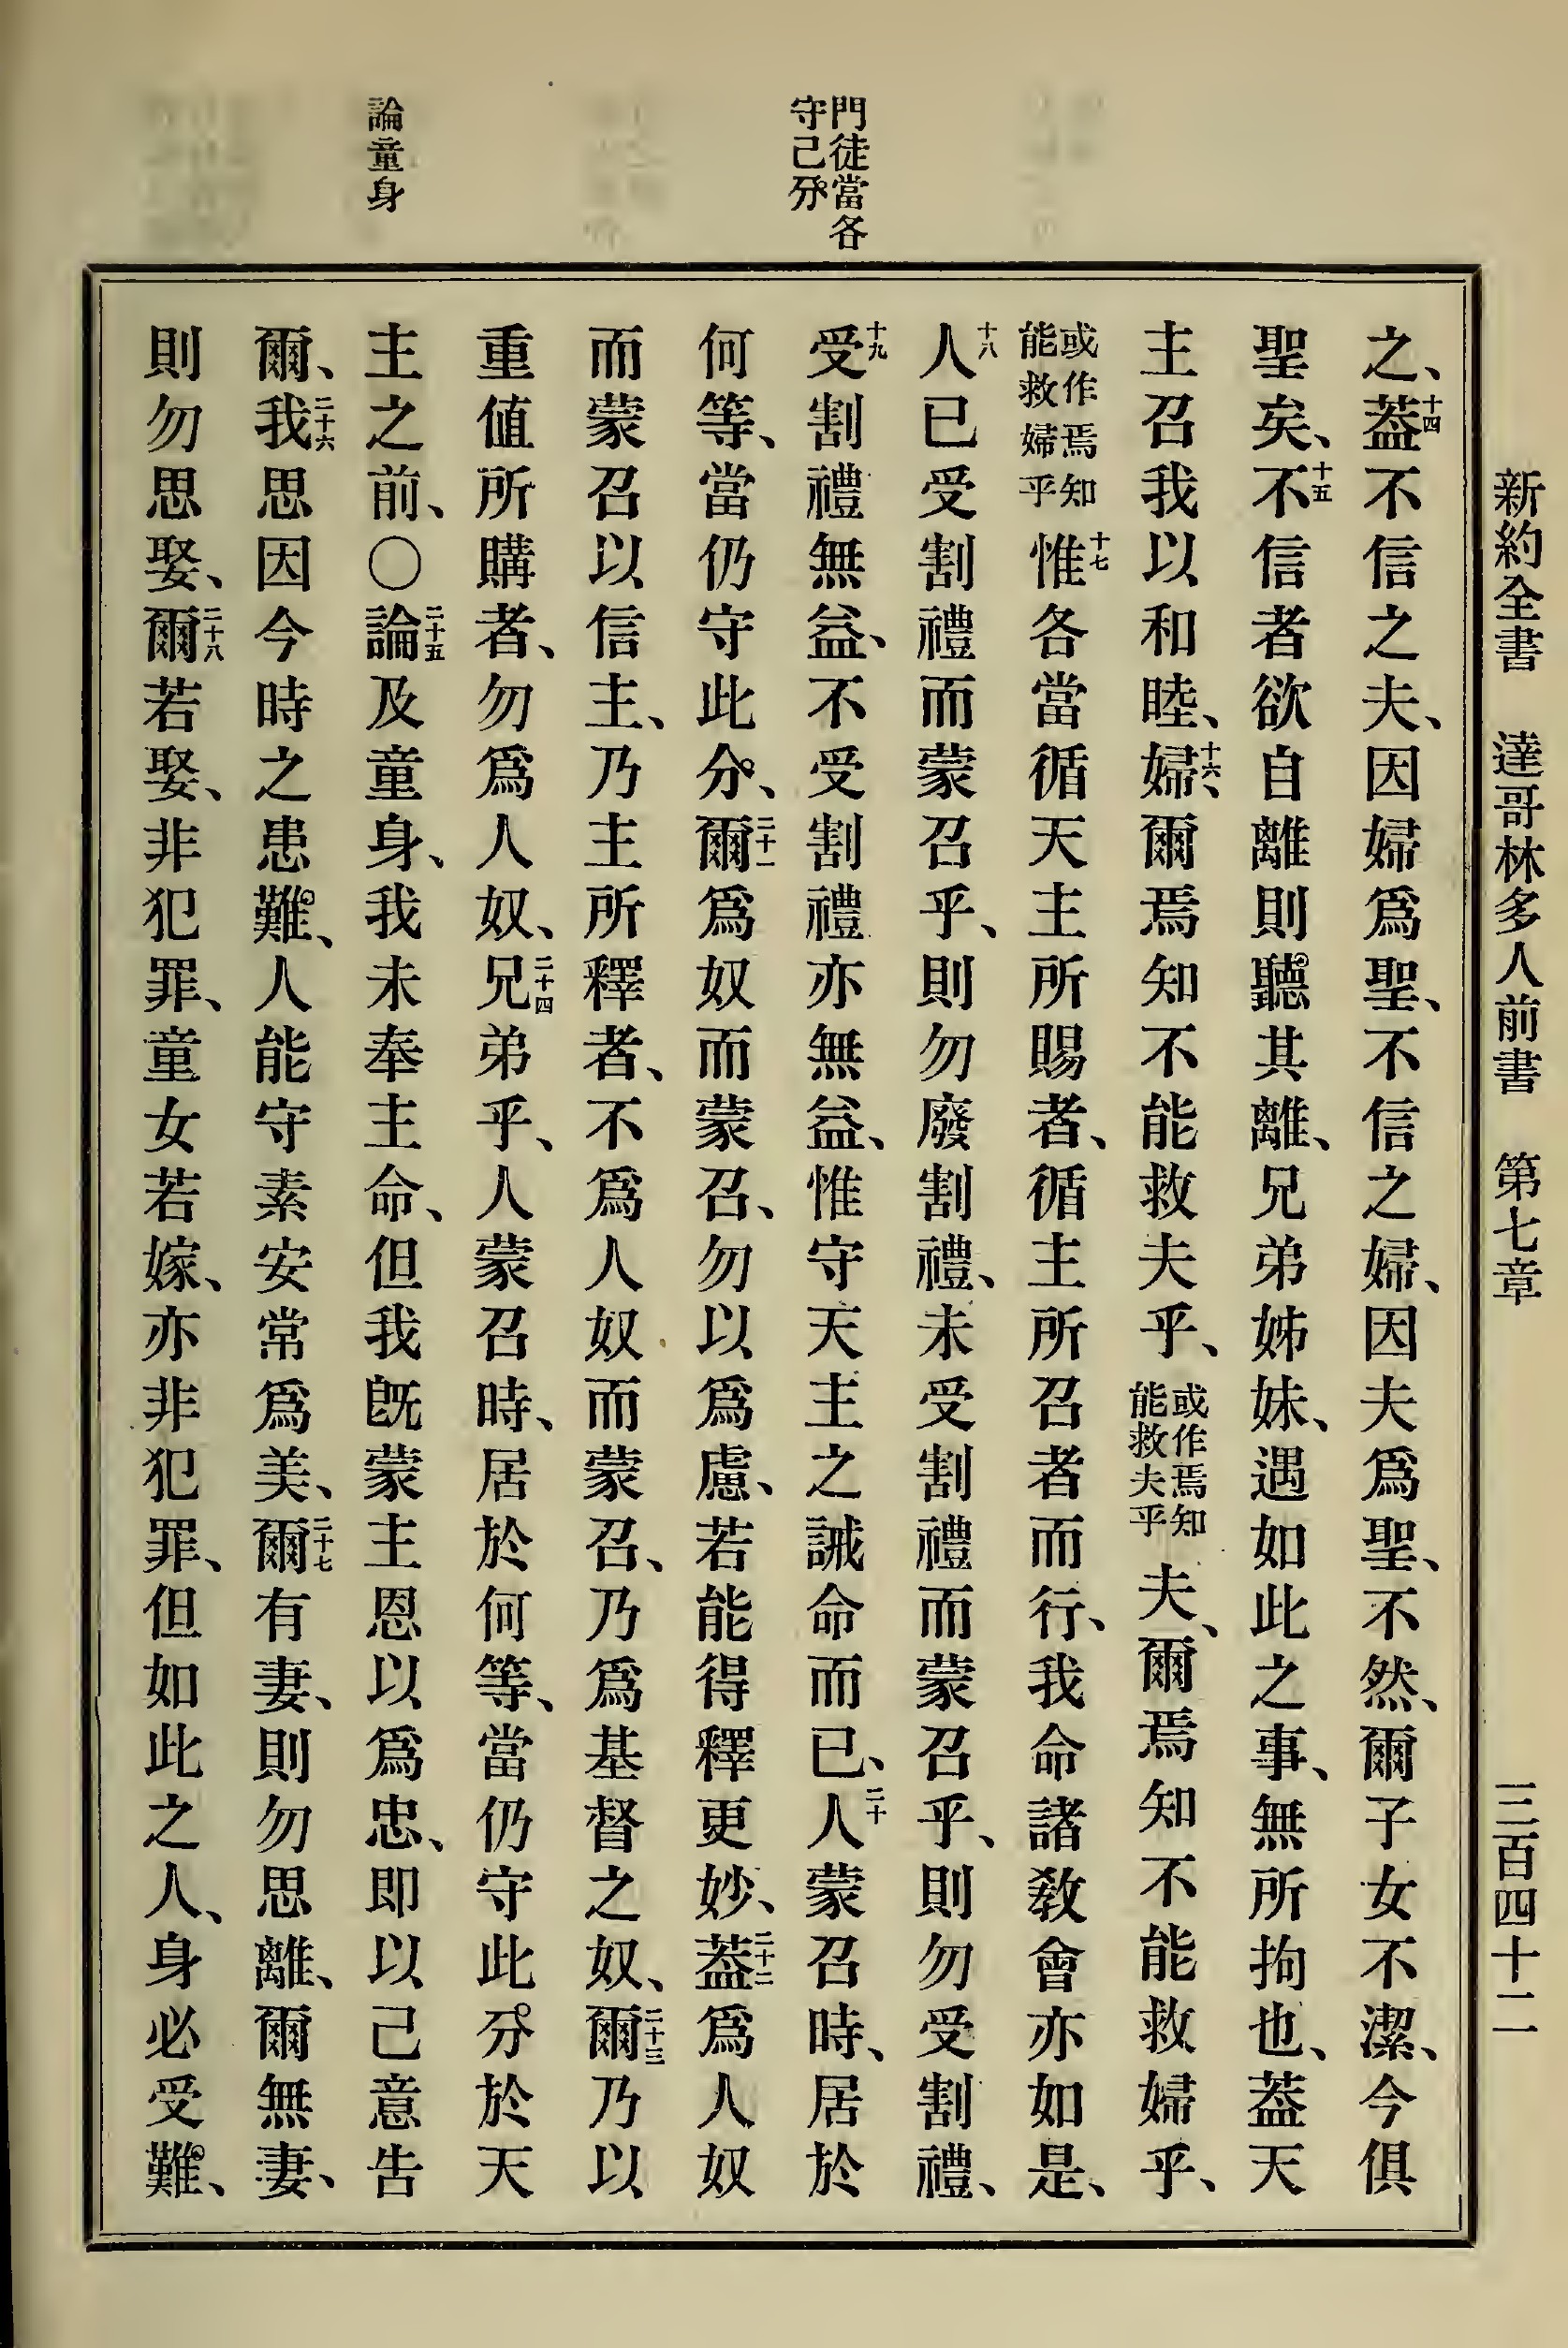 新約全書　達哥林多人前書　第七章　三百四十二
門徒當各
守己分
論童身
之、十四蓋不信之夫、因婦爲聖、不信之婦、因夫爲聖、不然、爾子女不潔、今俱
聖矣、十五不信者欲自離則聽其離、兄弟姊妹、遇如此之事、無所拘也、蓋天
主召我以和睦、十六婦、爾焉知不能救夫乎、或作焉知能救夫乎夫、爾焉知不能救婦乎、
或作焉知能救婦乎十七惟各當循天主所賜者、循主所召者而行、我命諸教會亦如是、
十八人已受割禮而蒙召乎、則勿廢割禮、未受割禮而蒙召乎、則勿受割禮、
十九受割禮無益、不受割禮亦無益、惟守天主之誡命而已、二十人蒙召時、居於
何等、當仍守此分、二十一爾爲奴而蒙召、勿以爲慮、若能得釋更妙、二十二蓋爲人奴
而蒙召以信主、乃主所釋者、不爲人奴而蒙召、乃爲基督之奴、二十三爾乃以
重値所購者、勿爲人奴、二十四兄弟乎、人蒙召時、居於何等、當仍守此分於天
主之前、〇二十五論及童身、我未奉主命、但我旣蒙主恩以爲忠、即以己意告
爾、二十六我思因今時之患難、人能守素安常爲美、二十七爾有妻、則勿思離、爾無妻、
則勿思娶、二十八爾若娶、非犯罪、童女若嫁、亦非犯罪、但如此之人、身必受難、